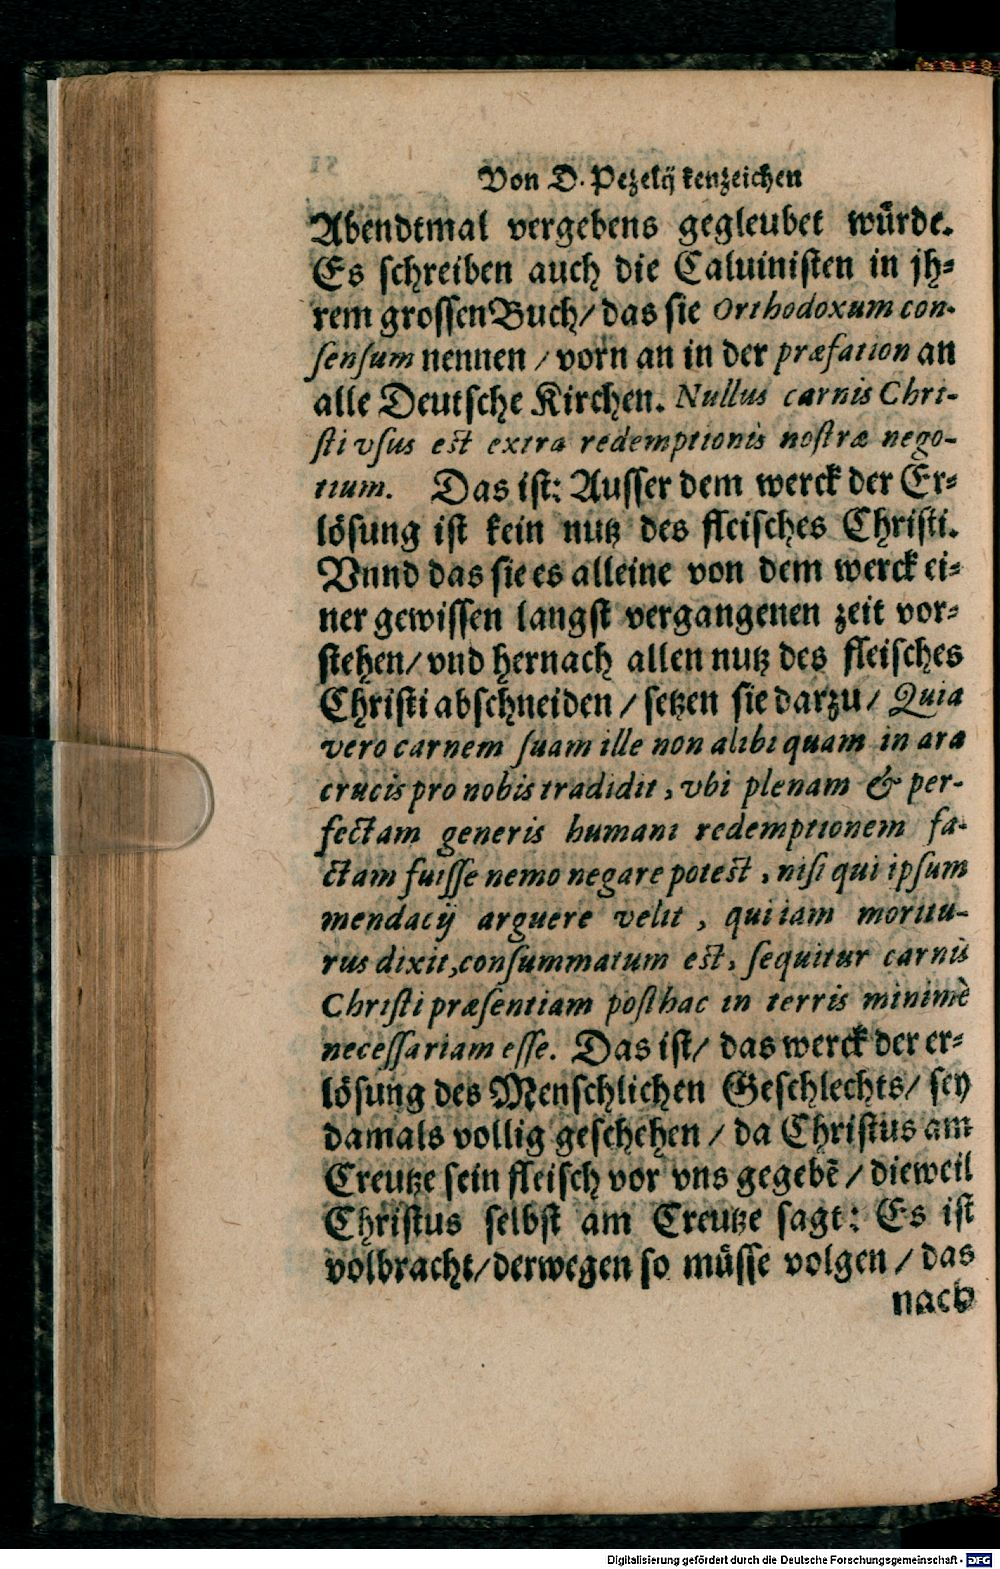 Von D. Pezelij kenzeichen
Abendtmal vergebens gegleubet würde.
Es schreiben auch die Caluinisten in jh-
rem grossen Buch/ das sie Orthodoxum con-
sensum nennen / vorn an in der præfation an
alle Deutsche Kirchen. Nullus carnis Chri-
sti vsus est extra redemptionis nostræ nego-
tium. Das ist: Ausser dem werck der Er-
lösung ist kein nutz des fleisches Christi.
Vnnd das sie es alleine von dem werck ei-
ner gewissen langst vergangenen zeit vor-
stehen/ vnd hernach allen nutz des fleisches
Christi abschneiden / setzen sie darzu / Quia
vero carnem suam ille non alibi quam in ara
crucis pro nobis tradidit, vbi plenam & per-
fectam generis humani redemptionem fa-
ctam fuisse nemo negare potest, nisi qui ipsum
mendacij arguere velit, qui iam moritu-
rus dixit, consummatum est, sequitur carnis
Christi præsentiam posthac in terris minimè
necessariam esse. Das ist/ das werck der er-
lösung des Menschlichen Geschlechts/ sey
damals vollig geschehen / da Christus am
Creutze sein fleisch vor vns gegebē / dieweil
Christus selbst am Creutze sagt: Es ist
volbracht/ derwegen so müsse volgen / das
nach
Digitalisierung gefördert durch die Deutsche Forschungsgemeinschaft - DFG